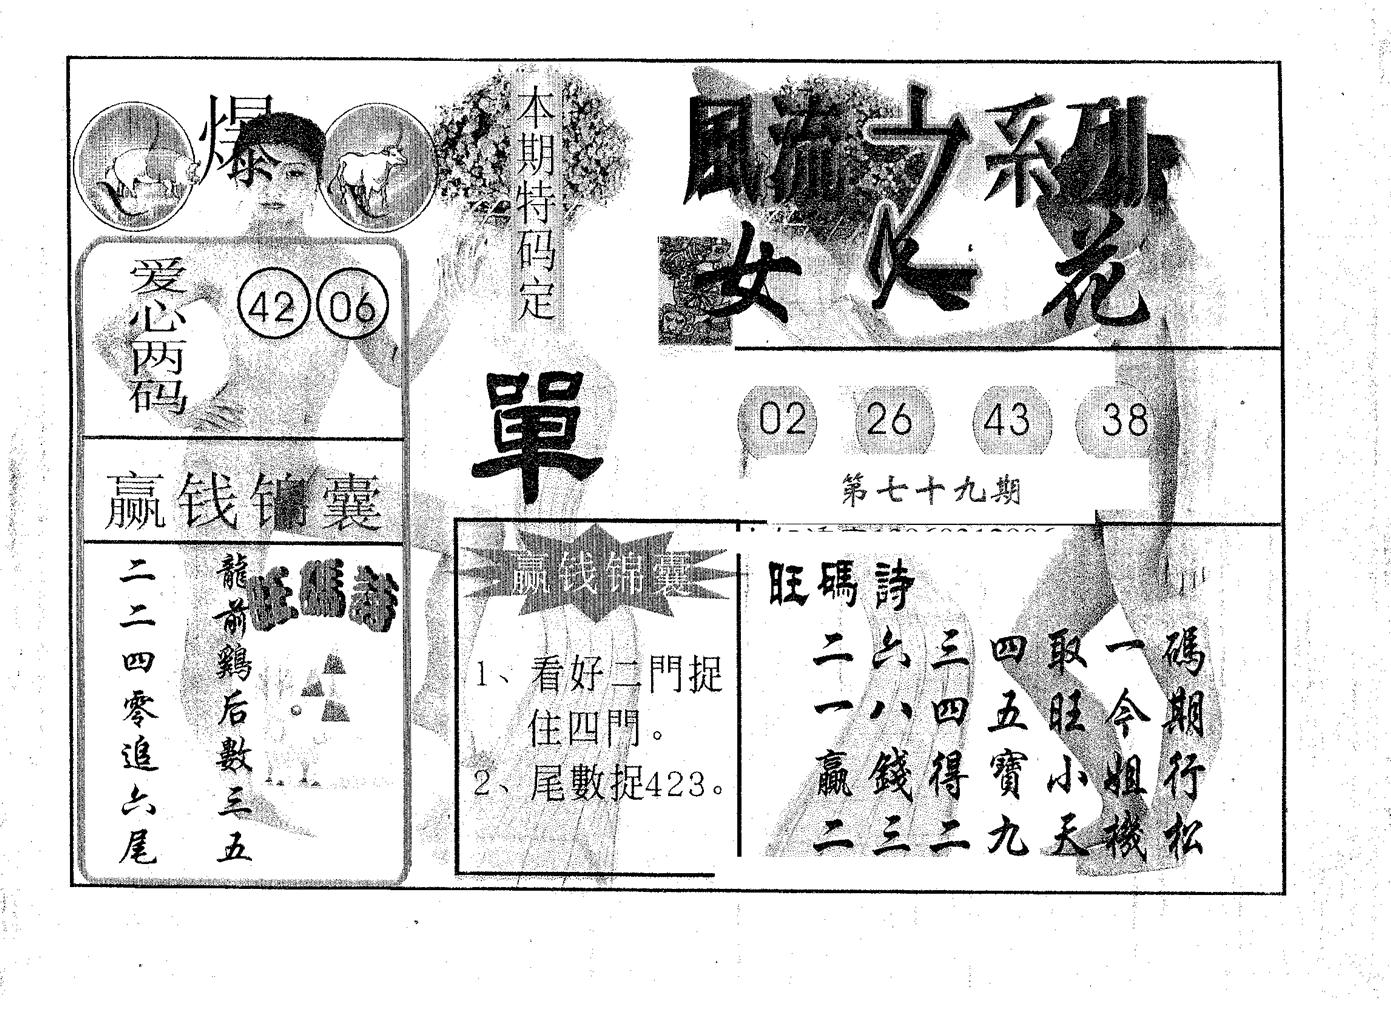 爆
爱心两码
42 06
赢钱锦囊
旺碼詩
龍前鷄后數三五
二二四零追六尾
本期特码定
單
赢钱锦囊
1、看好二門捉
住四門。
2、尾數捉423。
風流之系列
女人花
02 26 43 38
第七十九期
旺碼詩
二六三四取一碼
一八四五旺今期
贏錢得寶小姐行
二三二九天機松